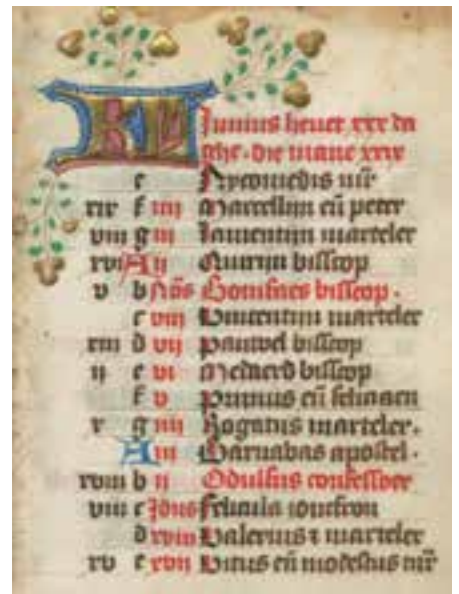 KL Iunius heuet xxx da
ghe · die mane xxix
e Nycomedis mr̄
xix f iiij Marcellijn eñ peter
viij g iij marteler
xvi A ij Quirijn bisscop
v b Nōs Bonifaes bisscop ·
c viij Vincentijn marteler
xiij d vij pauwel bisscop
ij e vi Medaerd bisscop
f v primus eñ feliaen
x g iiij Rogatus marteler ·
A iij Barnabas apostel ·
xviij b ij Odulfus confessoer
vij c Idus Felicula ioncfrou
d xviij Valerius z marteler
xv e xvij Vitus eñ modestus mr̄